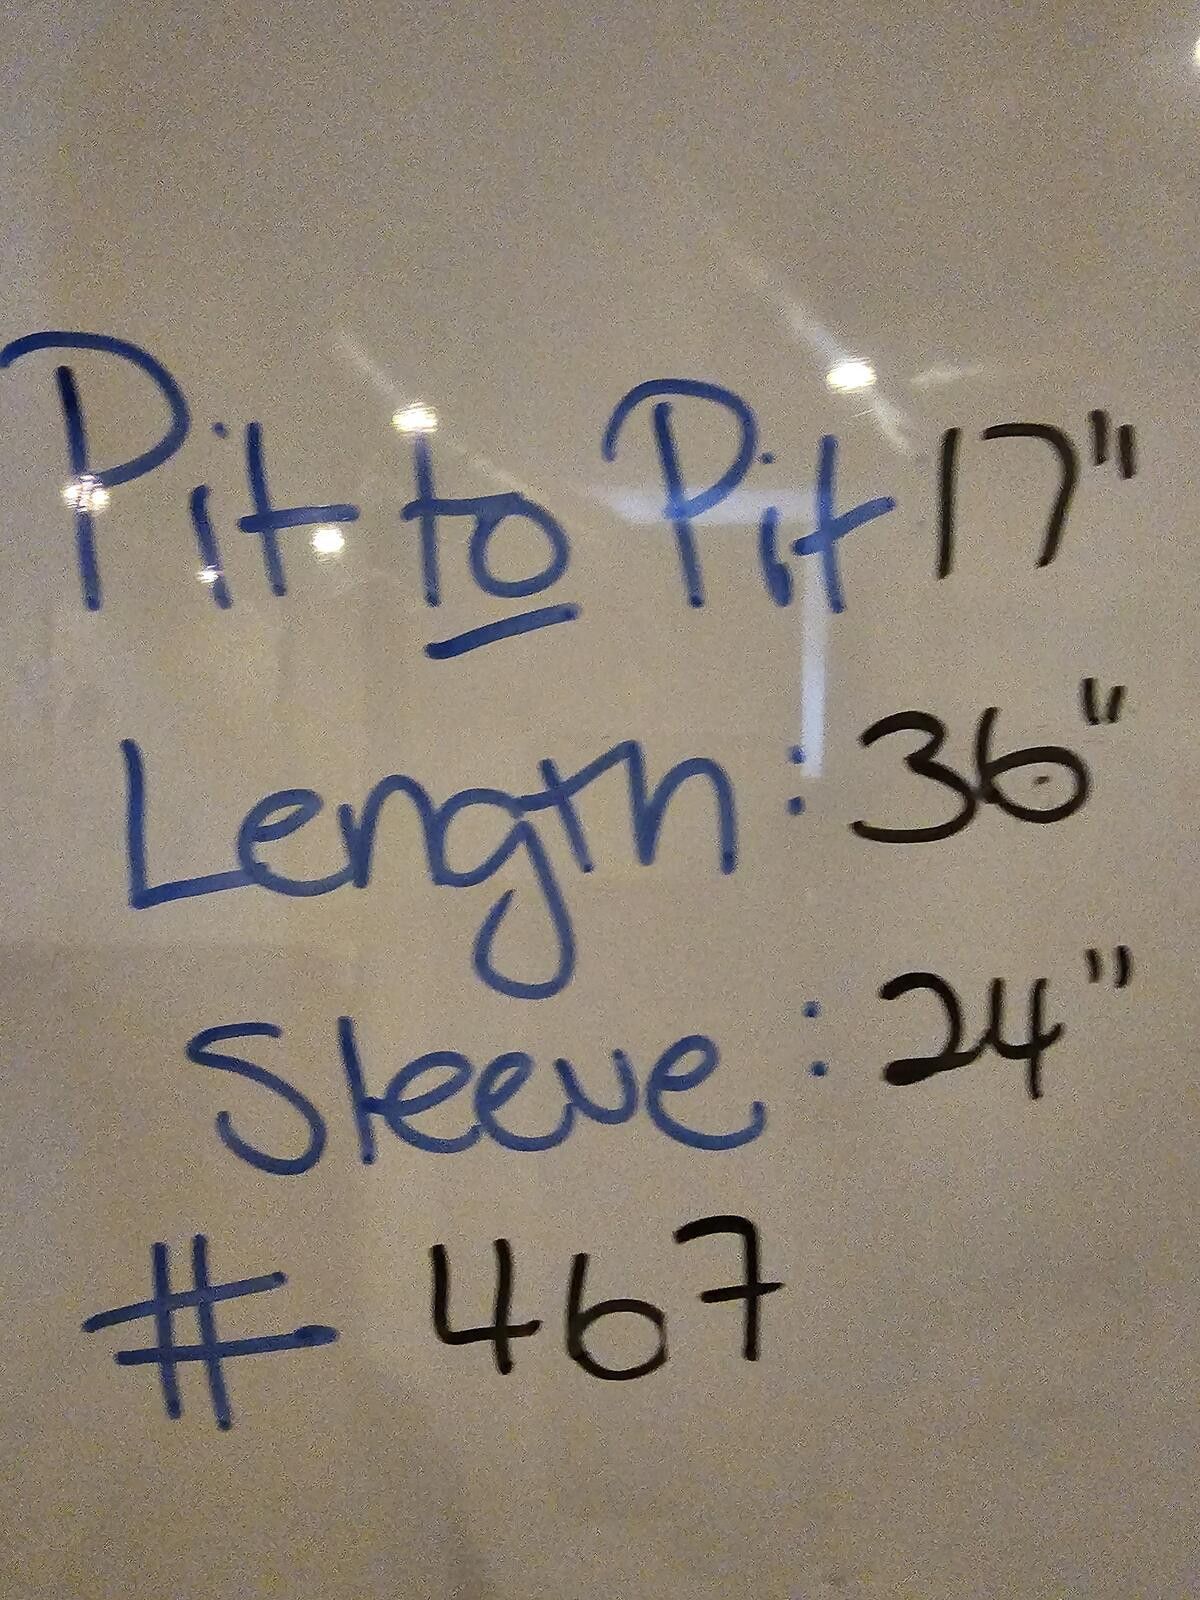 Pit to Pit 17"
Length: 36"
Sleeve: 24"
# 467